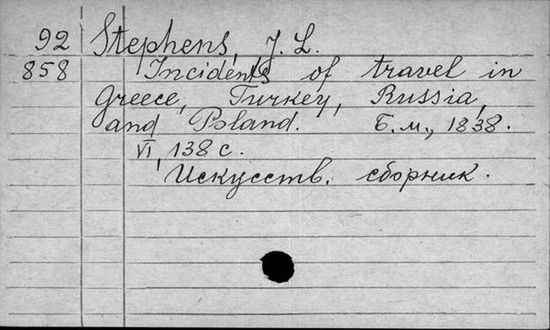 92 Stephens, J. L.
858 Incidents of travel in
Greece, Turkey, Russia,
and Poland. Б.м., 1838.
VI, 138 с.
Искусств. сборник.